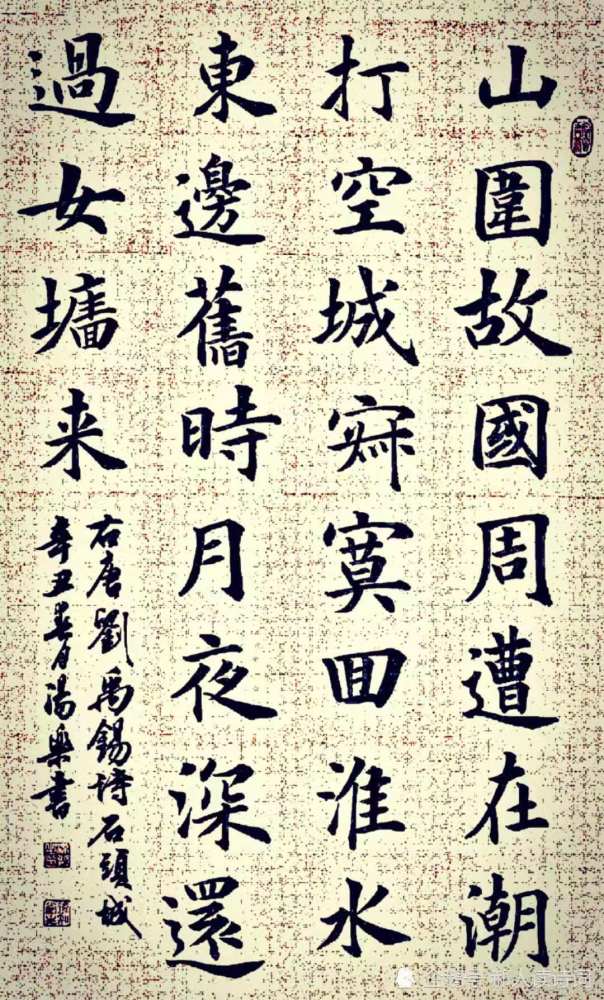 山圍故國周遭在潮
打空城寂寞回淮水
東邊舊時月夜深還
過女墻来
右唐劉禹錫詩石頭城
辛丑春月湯樂書